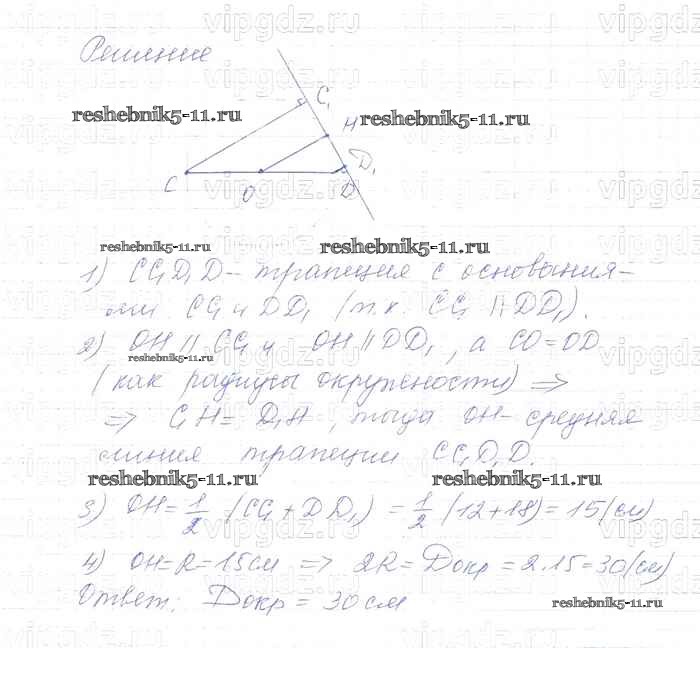 Решение
C₁
reshebnik5-11.ru
H
reshebnik5-11.ru
D₁
C
O
D
reshebnik5-11.ru
reshebnik5-11.ru
1) CC₁D₁D – трапеция с основания-
ми CC₁ и DD₁ (т.к. CC₁ || DD₁).
2) OH || CC₁ и OH || DD₁, а CO = OD
reshebnik5-11.ru
(как радиусы окружности) ⇒
⇒ C₁H = D₁H, тогда OH – средняя
линия трапеции CC₁D₁D.
reshebnik5-11.ru
reshebnik5-11.ru
3) OH = 1/2 (CC₁ + DD₁) = 1/2 (12+18) = 15 (см)
4) OH = R = 15 см ⇒ 2R = Dокр = 2·15 = 30 (см)
Ответ: Dокр = 30 см
reshebnik5-11.ru
vipgdz.ru